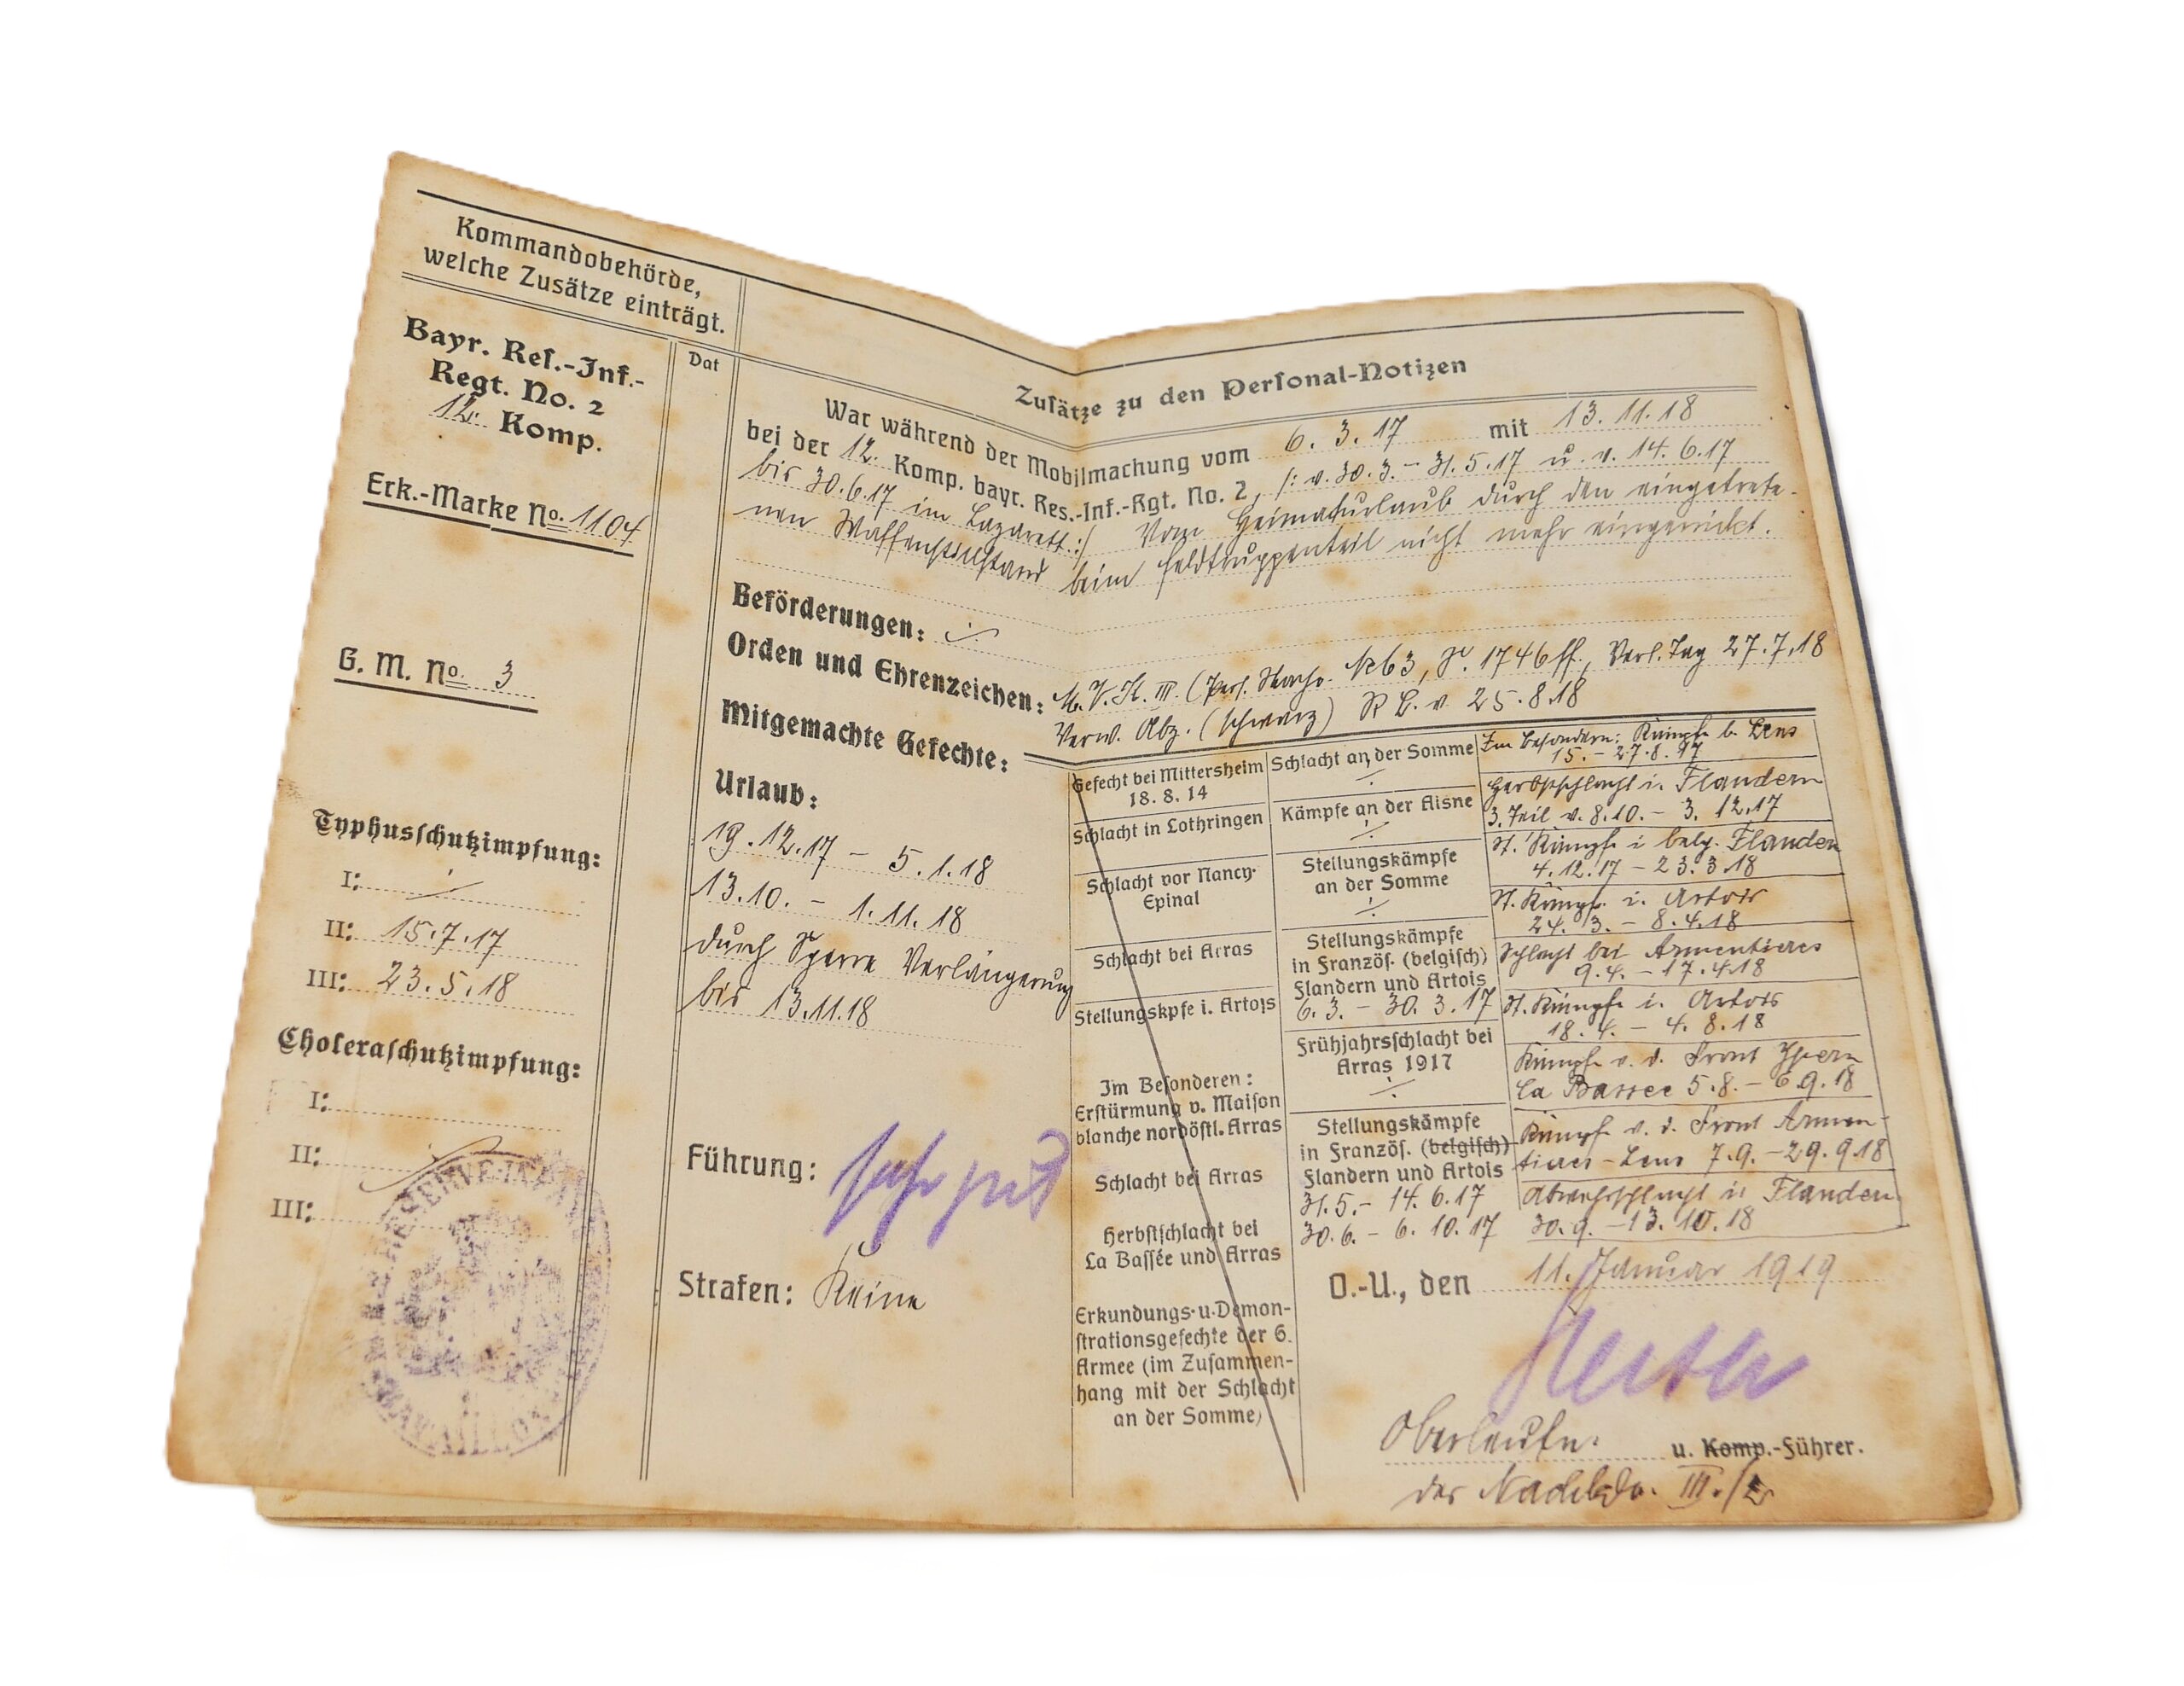 Kommandobehörde,
welche Zusätze einträgt.
Bayr. Res.-Inf.-
Regt. No. 2
12. Komp.
Erk.-Marke No. 1104
G. M. No. 3
Typhusschutzimpfung:
I: ∕.
II: 15.7.17
III: 23.5.18
Choleraschutzimpfung:
I:
II:
III:
Dat
Zusätze zu den Personal-Notizen
War während der Mobilmachung vom 6.3.17 mit 13.11.18
bei der 12. Komp. bayr. Res.-Inf.-Rgt. No. 2, /: v. 30.3. – 31.5.17 u. v. 14.6.17
bis 30.6.17 im Lazarett :/ Vom Heimaturlaub durch den eingetrete-
nen Waffenstillstand beim Feldtruppenteil nicht mehr eingerückt.
Beförderungen: ∕.
Orden und Ehrenzeichen: M.V.K. III. (Pers. No 63, 1746 ff., Verl. Tag 27.7.18
Verw. Abz. (schwarz) R B. v. 25.8.18
Mitgemachte Gefechte:
Urlaub:
19.12.17 – 5.1.18
13.10. – 1.11.18
durch Sperre Verlängerung
bis 13.11.18
Führung: sehr gut
Strafen: Keine
Gefecht bei Mittersheim
18. 8. 14
Schlacht in Lothringen
Schlacht vor Nancy-
Epinal
Schlacht bei Arras
Stellungskpfe i. Artois
Im Besonderen:
Erstürmung v. Maison
blanche nordöstl. Arras
Schlacht bei Arras
Herbstschlacht bei
La Bassée und Arras
Erkundungs-u-Demon-
strationsgefechte der 6.
Armee (im Zusammen-
hang mit der Schlacht
an der Somme)
Schlacht an der Somme
∕.
Kämpfe an der Aisne
∕.
Stellungskämpfe
an der Somme
∕.
Stellungskämpfe
in Französ. (belgisch)
Flandern und Artois
6.3. – 30.3.17
Frühjahrsschlacht bei
Arras 1917
∕.
Stellungskämpfe
in Französ. (belgisch)
Flandern und Artois
31.5. – 14.6.17
30.6. – 6.10.17
Im Besondern: Kämpfe b. Lens
15. – 27.8.17
Herbstschlacht i. Flandern
3. Teil v. 8.10. – 3.12.17
St. Kämpfe i belg. Flandern
4.12.17 – 23.3.18
St. Kämpfe i. Artois
24.3. – 8.4.18
Schlacht bei Armentieres
9.4. – 17.4.18
St. Kämpfe i. Artois
18.4. – 4.8.18
Kämpfe v. d. Front Ypern
La Bassee 5.8. – 6.9.18
Kämpfe v. d. Front Armen-
tieres – Lens 7.9. – 29.9.18
Abwehrschlacht in Flandern
30.9. – 13.10.18
O.-U., den 11. Januar 1919
Oberleutn. u. Komp.-Führer.
des III./2